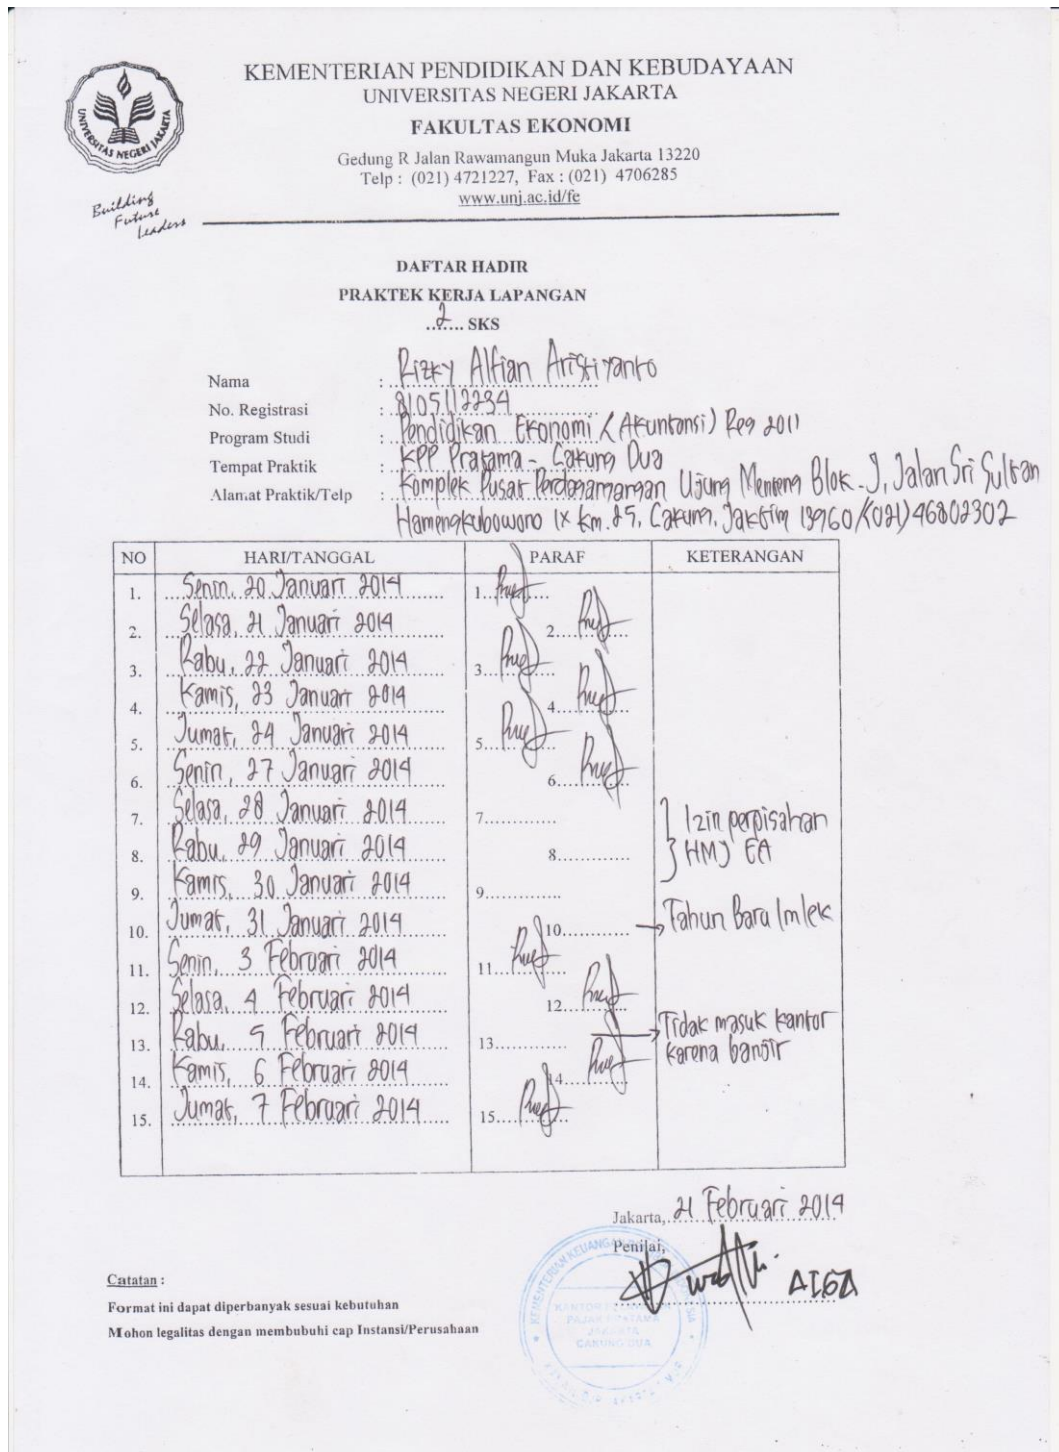 KEMENTERIAN PENDIDIKAN DAN KEBUDAYAAN
UNIVERSITAS NEGERI JAKARTA
FAKULTAS EKONOMI
Gedung R Jalan Rawamangun Muka Jakarta 13220
Telp : (021) 4721227, Fax : (021) 4706285
www.unj.ac.id/fe
UNIVERSITAS NEGERI JAKARTA
Building
Future
Leaders
DAFTAR HADIR
PRAKTEK KERJA LAPANGAN
..2.... SKS
Nama : Rizky Alfian Aristiyanto
No. Registrasi : 8105112234
Program Studi : Pendidikan Ekonomi (Akuntansi) Reg 2011
Tempat Praktik : KPP Pratama - Cakung Dua
Alamat Praktik/Telp : Komplek Pusat Perdagamangan Ujung Menteng Blok-J, Jalan Sri Sultan
Hamengkubowono IX Km. 25, Cakung, Jaktim 13960/(021)46802302
NO HARI/TANGGAL PARAF KETERANGAN
1. Senin, 20 Januari 2014 1.
2. Selasa, 21 Januari 2014 2.
3. Rabu, 22 Januari 2014 3.
4. Kamis, 23 Januari 2014 4.
5. Jumat, 24 Januari 2014 5.
6. Senin, 27 Januari 2014 6.
7. Selasa, 28 Januari 2014 7. Izin perpisahan
8. Rabu, 29 Januari 2014 8. HMJ EA
9. Kamis, 30 Januari 2014 9.
10. Jumat, 31 Januari 2014 10. Tahun Baru Imlek
11. Senin, 3 Februari 2014 11.
12. Selasa, 4 Februari 2014 12.
13. Rabu, 5 Februari 2014 13. Tidak masuk kantor
karena banjir
14. Kamis, 6 Februari 2014 14.
15. Jumat, 7 Februari 2014 15.
Jakarta, 21 Februari 2014
Penilai,
Catatan :
Format ini dapat diperbanyak sesuai kebutuhan
Mohon legalitas dengan membubuhi cap Instansi/Perusahaan
PAJAK PRATAMA
JAKARTA
CAKUNG DUA